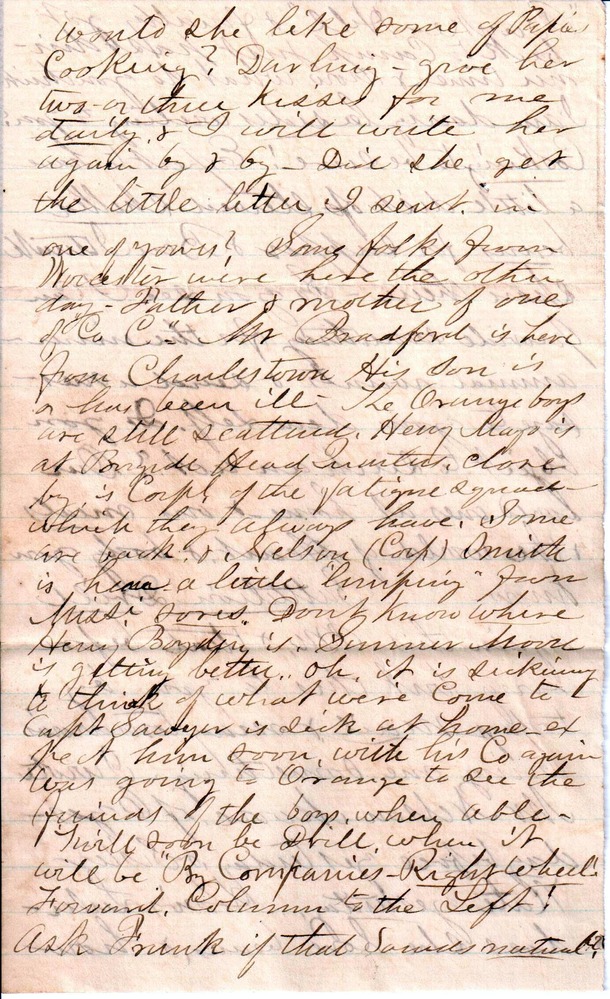 would she like some of Papa's
Cooking? Darling - give her
two or three kisses for me
daily. & I will write her
again by & by - Did she get
the little letter I sent in
one of yours? Some folks from
Worcester were here the other
day - Father & mother of one
of "Co C." Mr Bradford is here
from Charlestown His son is
or has been ill - The Orange boys
are still scattered. Henry Mayo is
at Brigade Head Quarters. close
by is Corpl of the fatigue squad
which they always have. Some
are back. & Nelson (Corp) Smith
is here a little "limping" from
Missi sores. Don't know where
Henry is. Sumner Moore
is getting better.. Oh, it is sickening
to think of what we've come to
Capt Sawyer is sick at home - ex
pect him soon, with his Co again
Was going to Orange to see the
friends of the boys, when able -
Twill soon be Drill, when it
will be "By Companies - Right Wheel"
Forward. Column to the Left!
Ask Frank if that sounds natural?